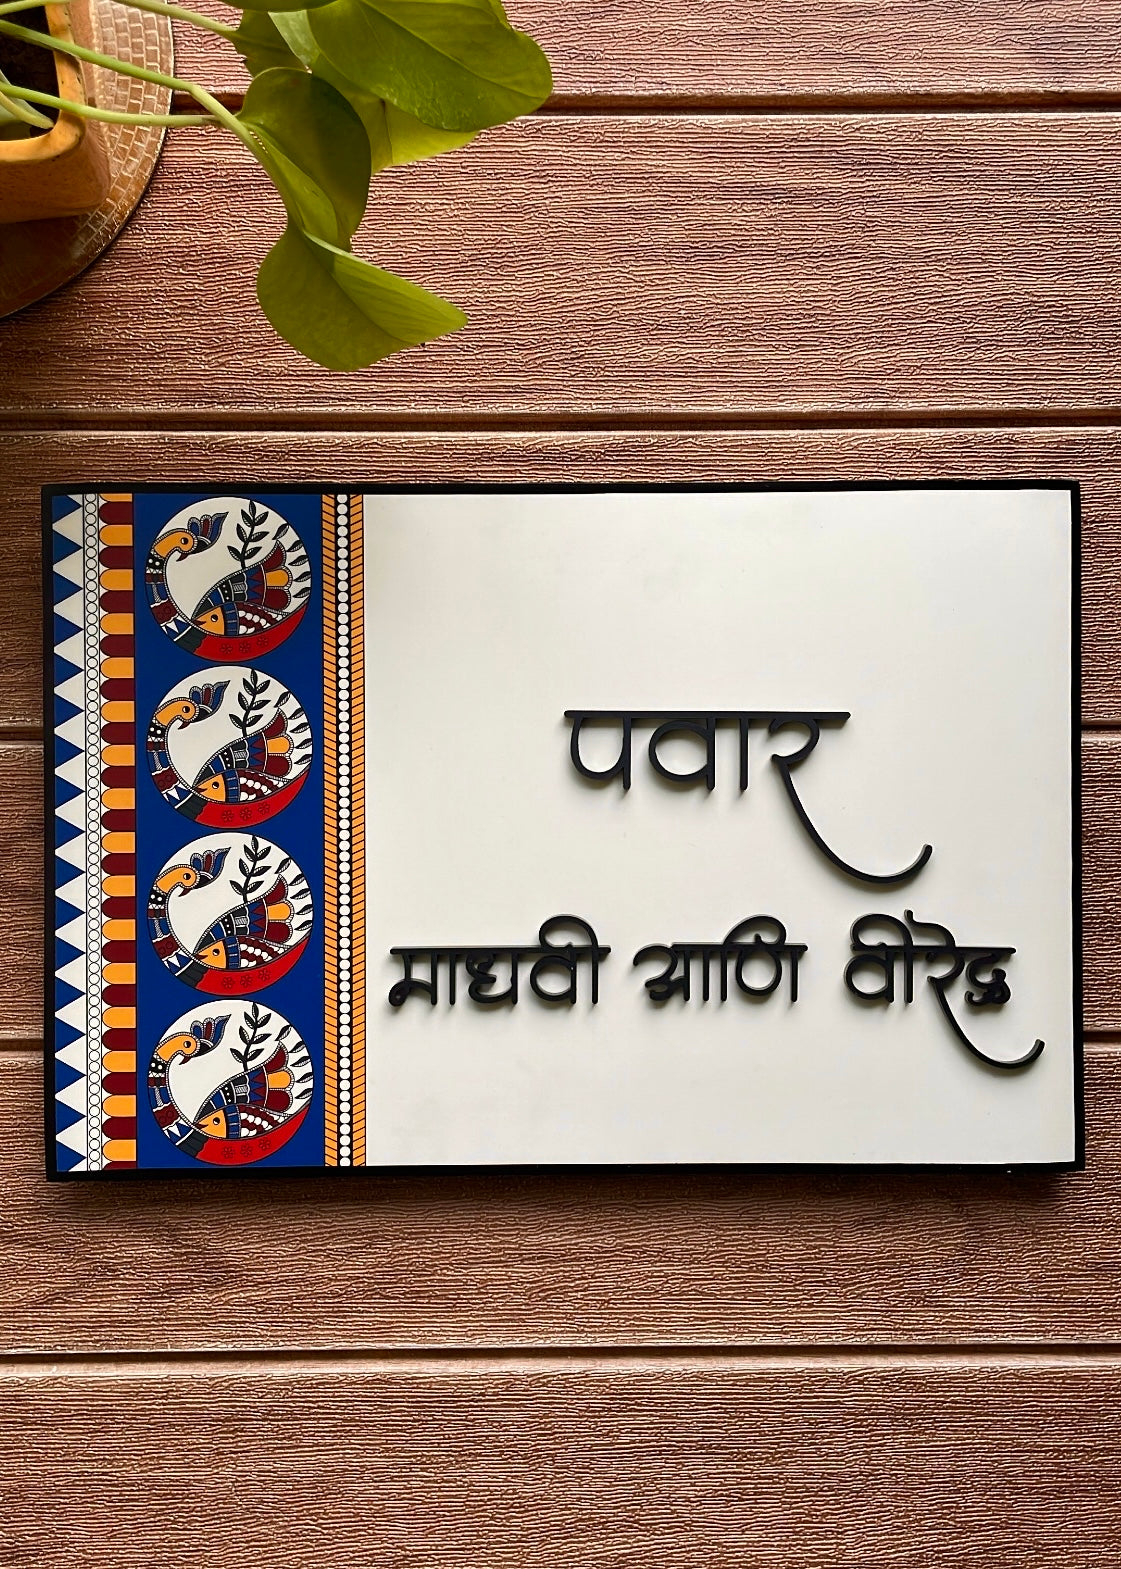 पवार
माधवी आणि वीरेद्र